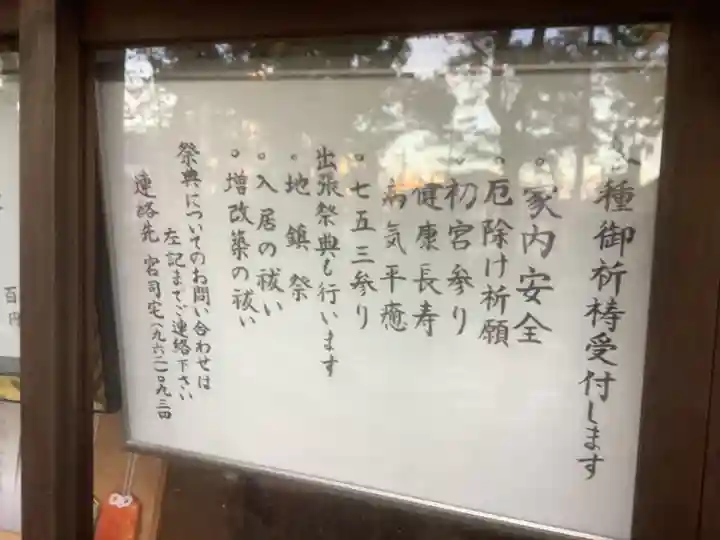 各種御祈祷受付します
。家内安全
。厄除け祈願
。初宮参り
健康長寿
病気平癒
。七五三参り
出張祭典も行います
・地鎮祭
。入居の祓い
。増改築の祓い
祭典についてのお問い合わせは
左記までご連絡下さい
連絡先 宮司宅(九六二)〇九三四
百円